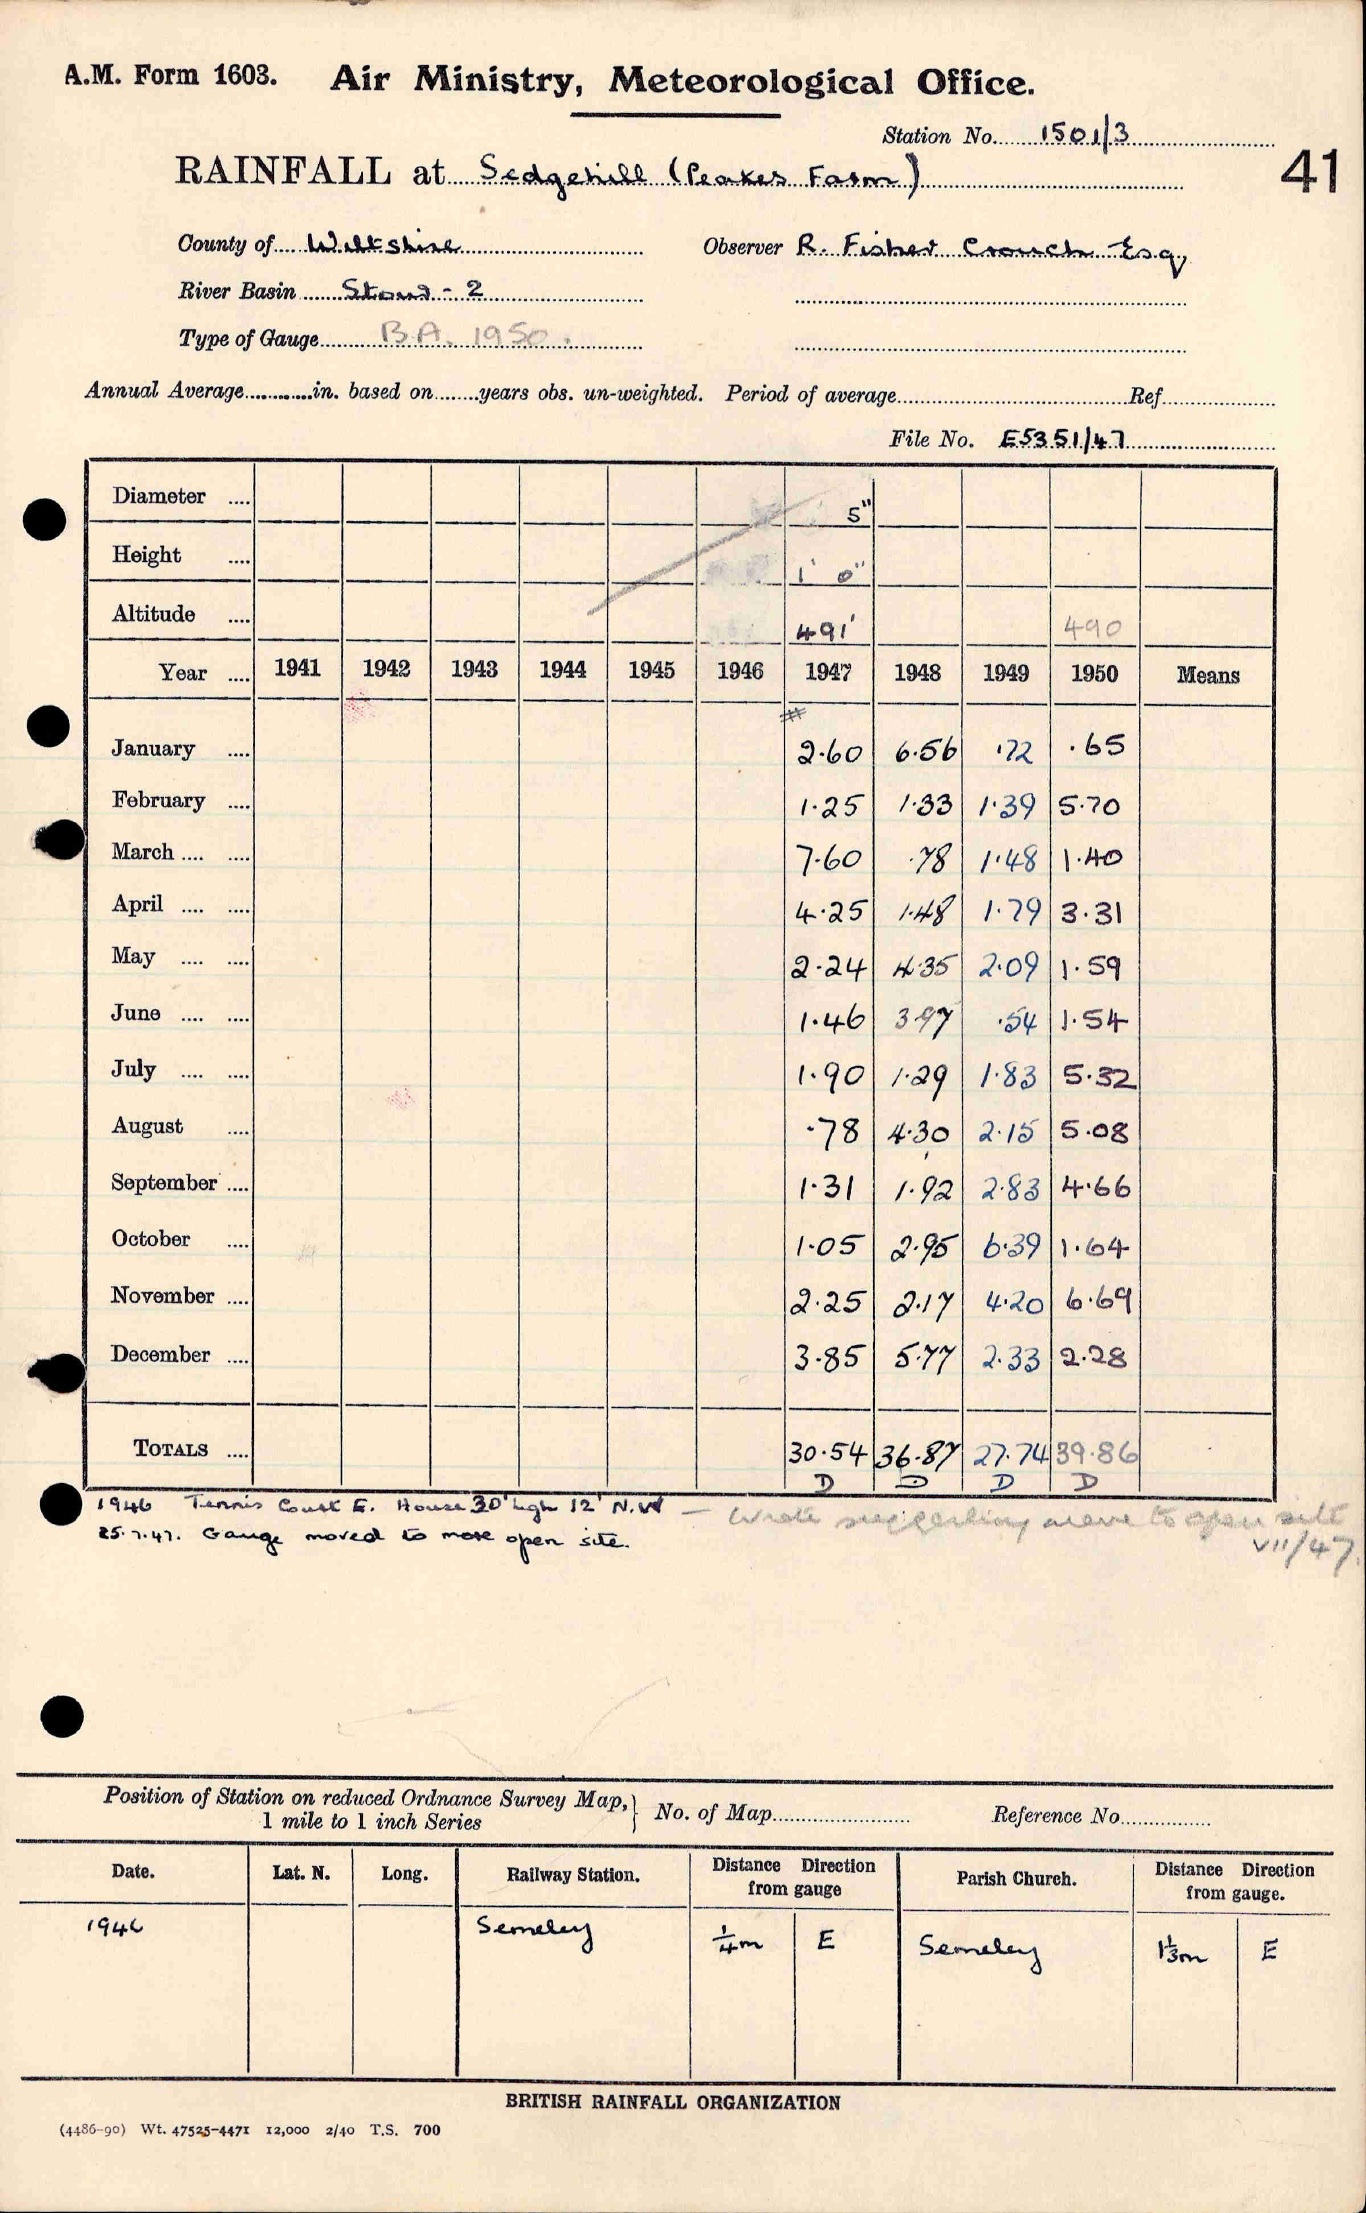 A.M. Form 1603. Air Ministry, Meteorological Office.
Station No. 1501/3
41
RAINFALL at Sedgehill (Peakes Farm)
County of Wiltshire Observer R. Fisher Crouch Esq,
River Basin Stour - 2
Type of Gauge B.A. 1950.
Annual Average in. based on years obs. un-weighted. Period of average Ref
File No. E5351/47
Diameter 5"
Height 1' 0"
Altitude 491' 490
Year 1941 1942 1943 1944 1945 1946 1947 1948 1949 1950 Means
January 2.60 6.56 .72 .65
February 1.25 1.33 1.39 5.70
March 7.60 .78 1.48 1.40
April 4.25 1.48 1.79 3.31
May 2.24 4.35 2.09 1.59
June 1.46 3.97 .54 1.54
July 1.90 1.29 1.83 5.32
August .78 4.30 2.15 5.08
September 1.31 1.92 2.83 4.66
October 1.05 2.95 6.39 1.64
November 2.25 2.17 4.20 6.69
December 3.85 5.77 2.33 2.28
TOTALS 30.54 36.87 27.74 39.86
D D D D
1946 Tennis Court E. House 30' high 12' N.W — Wrote suggesting move to open site
VII/47.
25.7.47. Gauge moved to more open site.
Position of Station on reduced Ordnance Survey Map, 1 mile to 1 inch Series } No. of Map Reference No
Date. Lat. N. Long. Railway Station. Distance Direction from gauge Parish Church. Distance Direction from gauge.
1946 Semeley 1/4m E Semeley 1 1/3m E
BRITISH RAINFALL ORGANIZATION
(4486-90) Wt. 47525-4471 12,000 2/40 T.S. 700